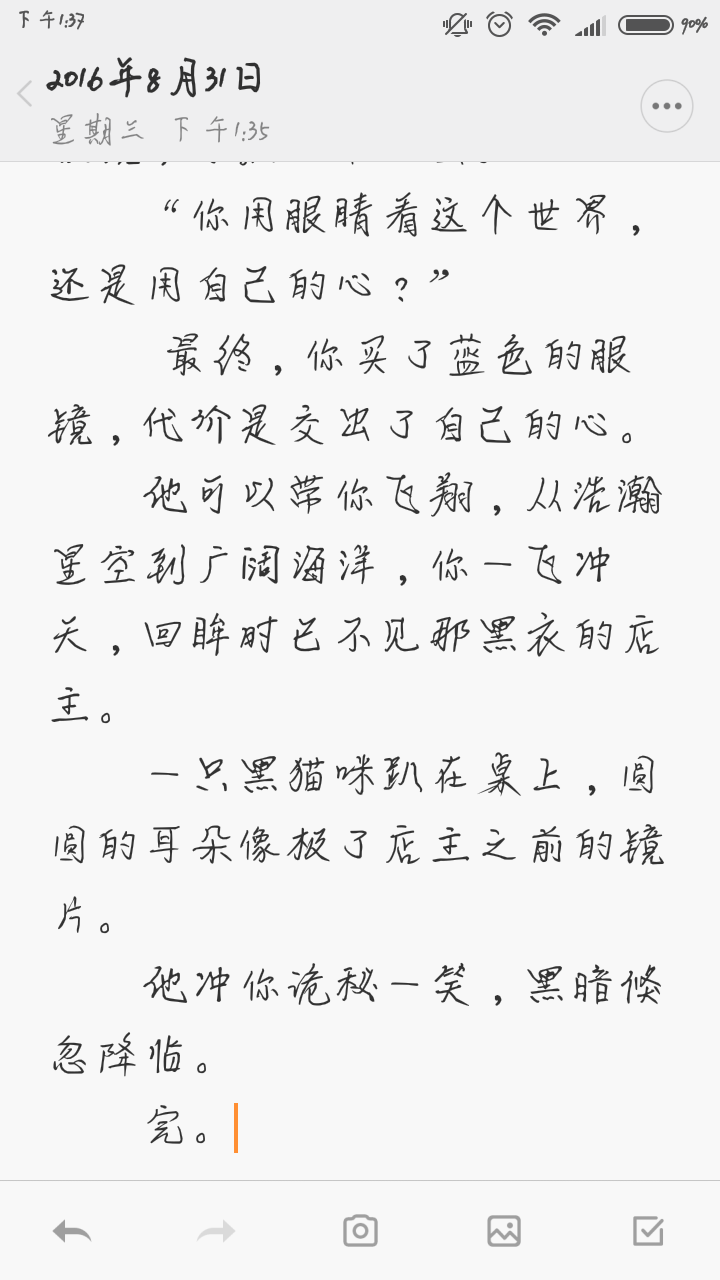 下午1:37
90%
2016年8月31日
星期三 下午1:35
“你用眼睛看这个世界，
还是用自己的心？”
最终，你买了蓝色的眼
镜，代价是交出了自己的心。
他可以带你飞翔，从浩瀚
星空到广阔海洋，你一飞冲
天，回眸时已不见那黑衣的店
主。
一只黑猫咪趴在桌上，圆
圆的耳朵像极了店主之前的镜
片。
他冲你诡秘一笑，黑暗倏
忽降临。
完。